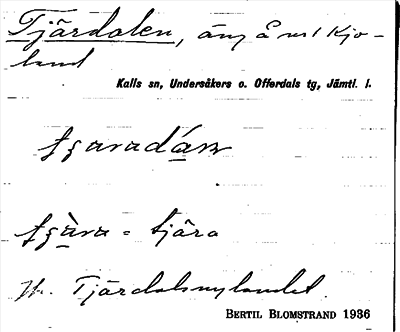 Tjärdalen, äng å nr 1 Kjo-
land
Kalls sn, Undersåkers o. Offerdals tg, Jämtl. l.
tjära
Jfr. Tjärdalsnylandet.
BERTIL BLOMSTRAND 1936